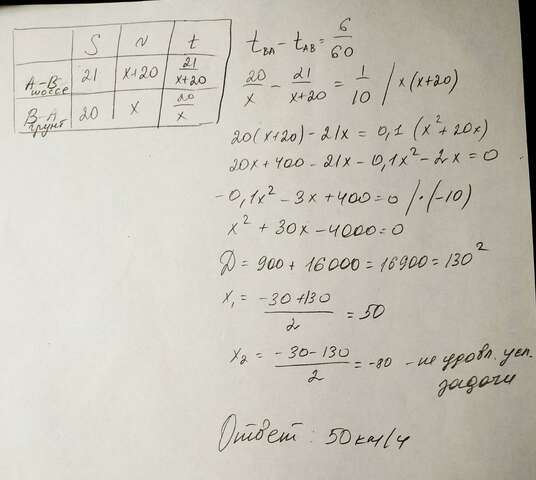 S v t
А-В шоссе 21 x+20 21/(x+20)
В-А грунт 20 x 20/x
t_BA - t_AB = 6/60
20/x - 21/(x+20) = 1/10 / x(x+20)
20(x+20) - 21x = 0,1(x²+20x)
20x+400-21x-0,1x²-2x=0
-0,1x²-3x+400=0 /·(-10)
x²+30x-4000=0
D=900+16000=16900=130²
x₁= (-30+130)/2 = 50
x₂= (-30-130)/2 = -80 - не удовл. усл.
задачи
Ответ: 50 км/ч